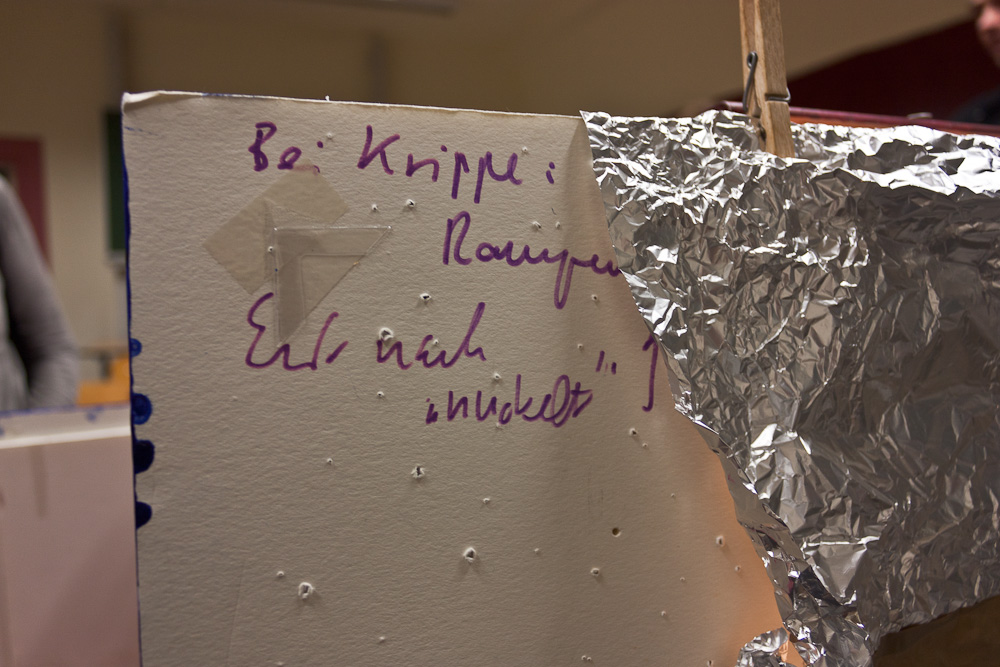 Bei Krippe:
Rampen
Erst nach
"nuckelt"